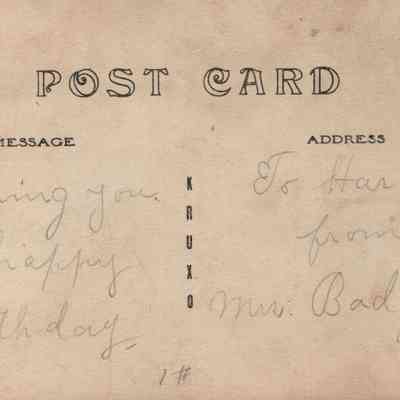 POST CARD
MESSAGE
ADDRESS
ing you.
happy
thday,
KRUXO
To Har
from
Mr. Bad
1 #